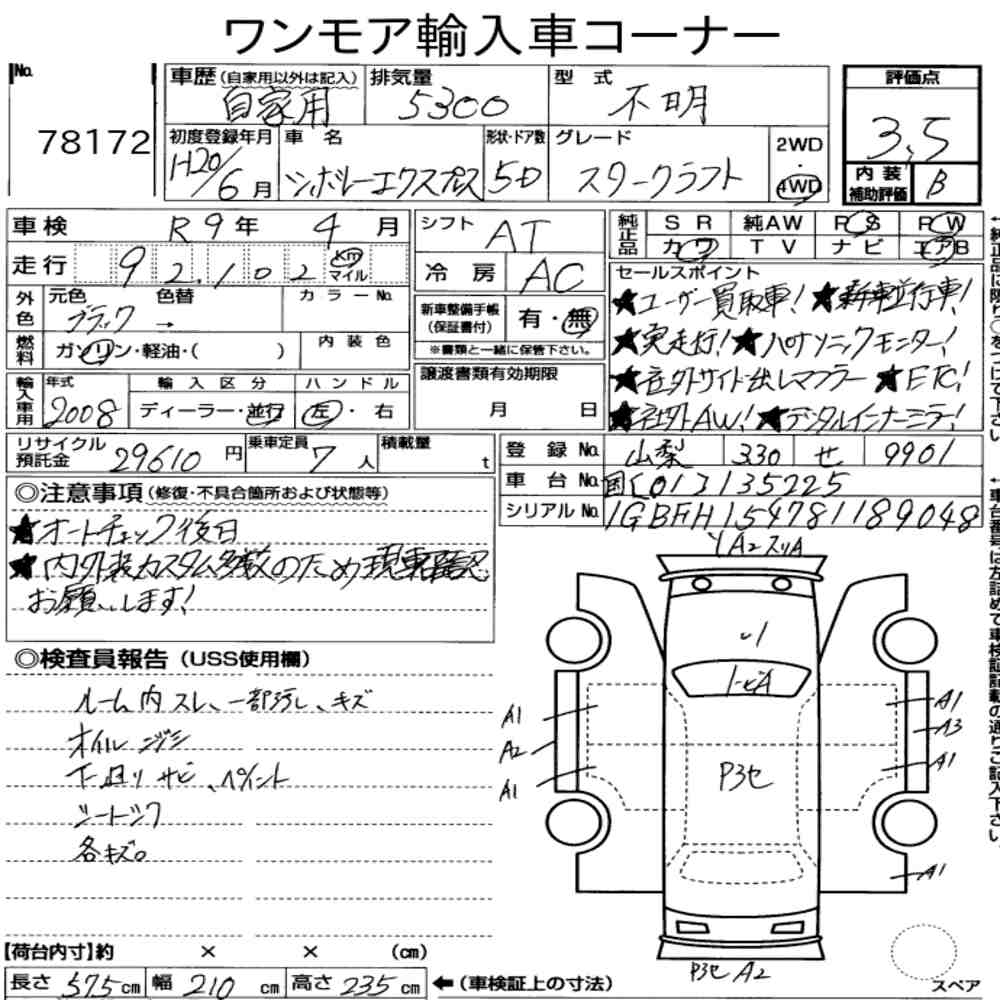 ワンモア輸入車コーナー
No. 78172
車歴(自家用以外は記入) 自家用
排気量 5300
型式 不明
評価点 3.5
初度登録年月 H20/6月
車名 シボレーエクスプレス
形状・ドア数 5D
グレード スタークラフト
2WD・4WD
内装補助評価 B
車検 R9年 4月
シフト AT
純正品 SR 純AW PS PW
カワ TV ナビ エアB
走行 92,102 km マイル
冷房 AC
セールスポイント
★ユーザー買取車! ★新車並行車!
外色 元色 ブラック → 色替 カラーNo.
新車整備手帳(保証書付) 有・無
★実走行! ★パナソニックモニター!
燃料 ガソリン・軽油・( ) 内装色
※書類と一緒に保管下さい。
★社外サイド出しマフラー ★ETC!
輸入車用 年式 2008 輸入区分 ディーラー・並行 ハンドル 左・右
譲渡書類有効期限 月 日
★社外AW! ★デジタルインナーミラー!
リサイクル預託金 29610円
乗車定員 7人
積載量 t
登録No. 山梨 330 せ 9901
車台No. 国[01]135225
シリアルNo. 1GBFH154781189048
◎注意事項(修復・不具合箇所および状態等)
★オートチェック後日
★内外装カスタム多数のため現車確認
お願いします!
◎検査員報告(USS使用欄)
ルーム内スレ、一部汚レ、キズ
オイルジミ
下回りサビ、ペイント
シートシワ
各キズ。
A2 スリA
トビA
A1
A2
A1
P3セ
A1
A3
A1
A1
P3セ A2
スペア
【荷台内寸】約 × × (cm)
長さ 575cm 幅 210cm 高さ 235cm ←(車検証上の寸法)
←純正品に限り○をつけて下さい。
←車台番号は左詰めで車検証記載の通りご記入下さい。